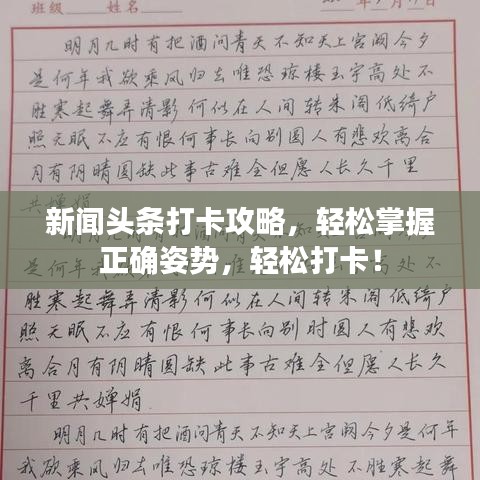 班级 姓名
明月几时有把酒问青天不知天上宫阙今夕
是何年我欲乘风归去唯恐琼楼玉宇高处不
胜寒起舞弄清影何似在人间转朱阁低绮户
照无眠不应有恨何事长向别圆人有悲欢离合
月有阴晴圆缺此事古难全但愿人长久千里
共婵娟
新闻头条打卡攻略,轻松掌握
正确姿势,轻松打卡!
胜寒起舞弄清影何似在人间转朱阁低绮户
照无眠不应有恨何事长向别时圆人有悲欢
离合月有阴晴圆缺此事古难全但愿人长久
千里共婵娟
明月几时有把酒问青天不知天上宫阙今夕是何年
我欲乘风归去唯恐琼楼玉宇高处不胜寒